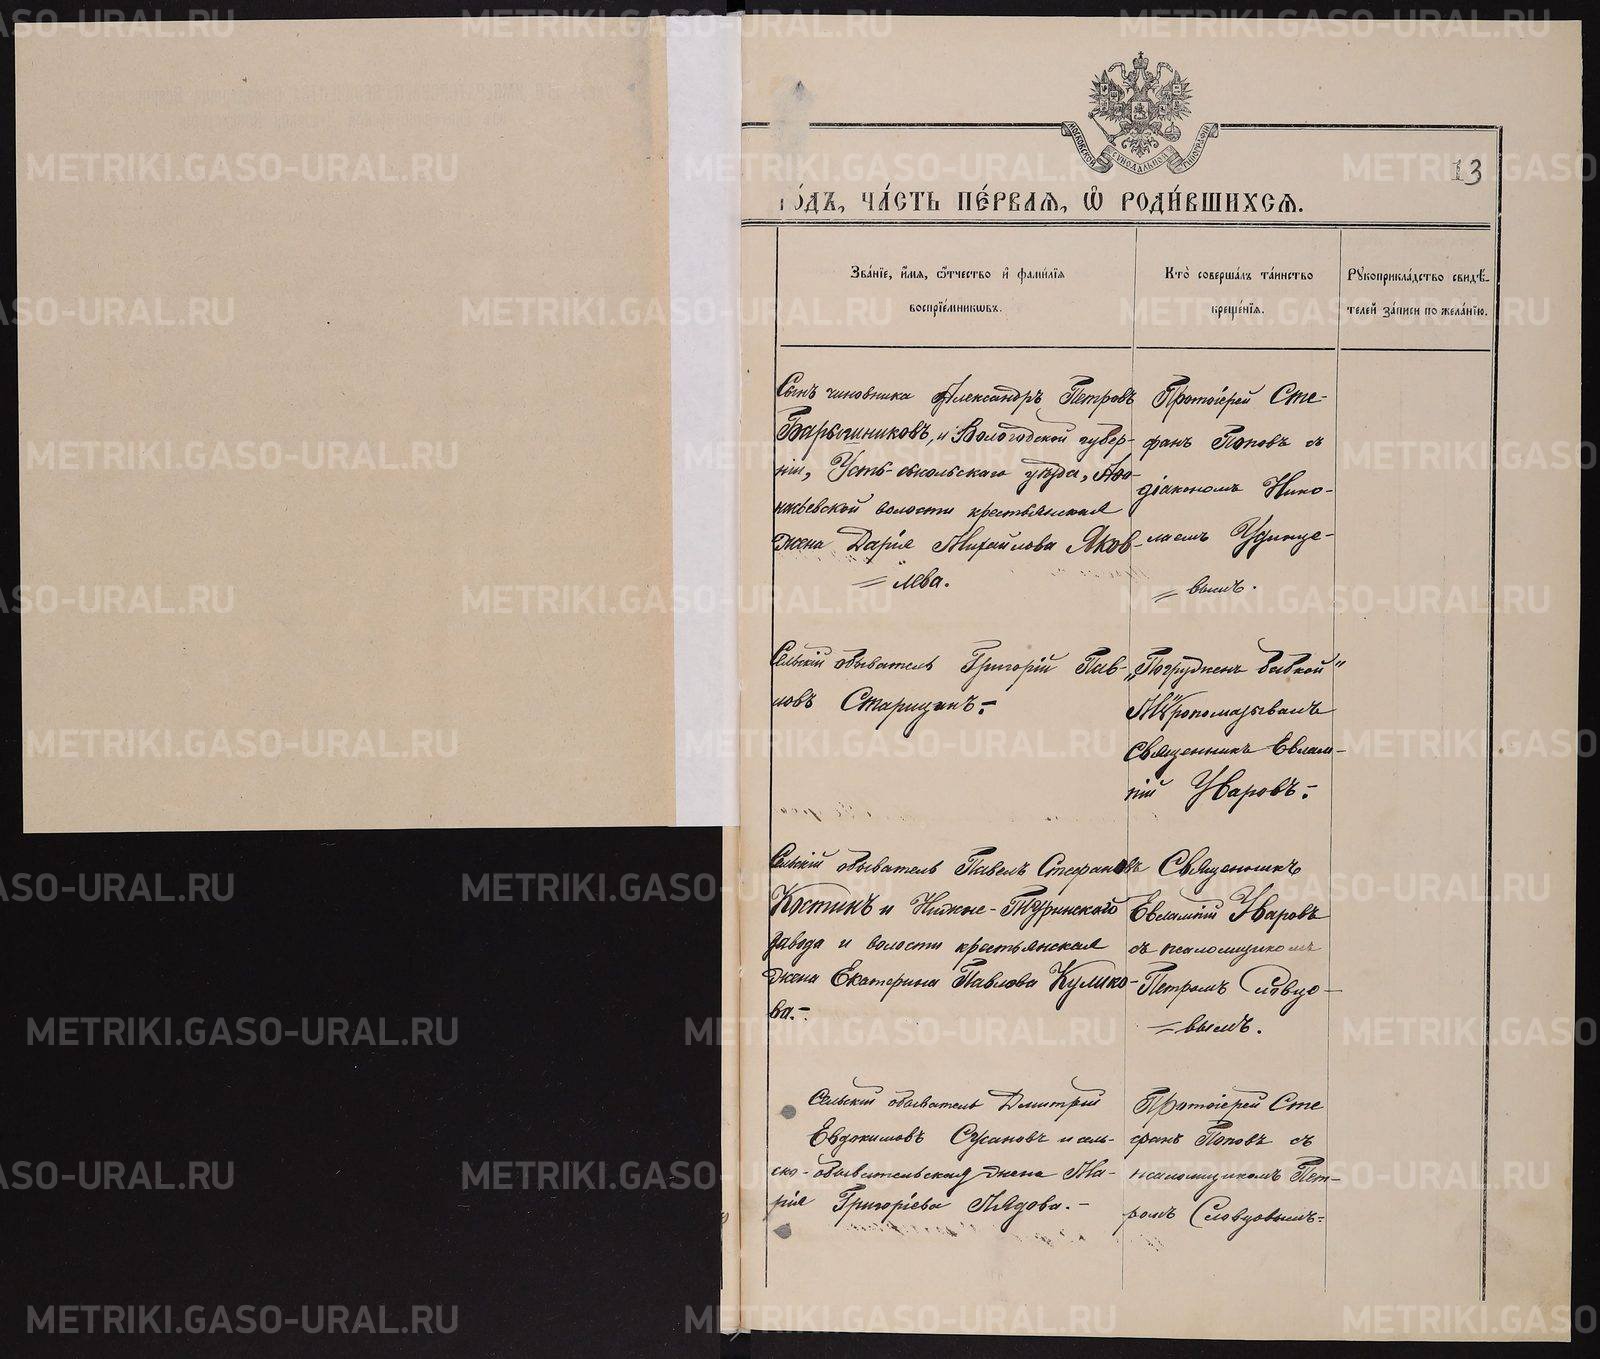 МОСКОВСКОЙ СУНОДАЛЬНОЙ ТИПОГРАФІИ
13
го́дъ, ча́сть пе́рваѧ, ѡ҆ роди́вшихсѧ.
Зва́нїе, и҆́мѧ, ѻ҆́тчество и҆ фами́лїѧ
воспрїе́мникѡвъ.
Кто̀ соверша́лъ та́инство
креще́нїѧ.
Рꙋкоприкла́дство свидѣ́-
телей за́писи по жела́нїю.
Сынъ чиновника Александръ Петровъ
Барышниковъ, и Вологодской губер-
ніи, Усть-сысольскаго уѣзда,
волости крестьянская
жена Дарія Михайлова Яков-
= лева.
Протоіерей Сте-
фанъ Поповъ съ
діакономъ Нико-
лаемъ Удинце-
= вымъ.
Сельскій обыватель Григорій Пав-
ловъ Старицинъ.-
„Погруженъ бабкой"
Мѵропомазывалъ
Священникъ Евлам-
пій Уваровъ.-
Сельскій обыватель Павелъ Стефановъ
Костинъ и Нижне-Туринскаго
завода и волости крестьянская
жена Екатерина Павлова Кулико-
ва.-
Священникъ
Евлампій Уваровъ
съ псаломщикомъ
Петромъ Словцо-
= вымъ.
Сельскій обыватель Дмитрій
Евдокимовъ Сусановъ и сель-
ско-обывательская жена Ма-
рія Григоріева Лядова.-
Протоіерей Сте
фанъ Поповъ съ
псаломщикомъ Пет-
ромъ Словцовымъ.-
METRIKI.GASO-URAL.RU